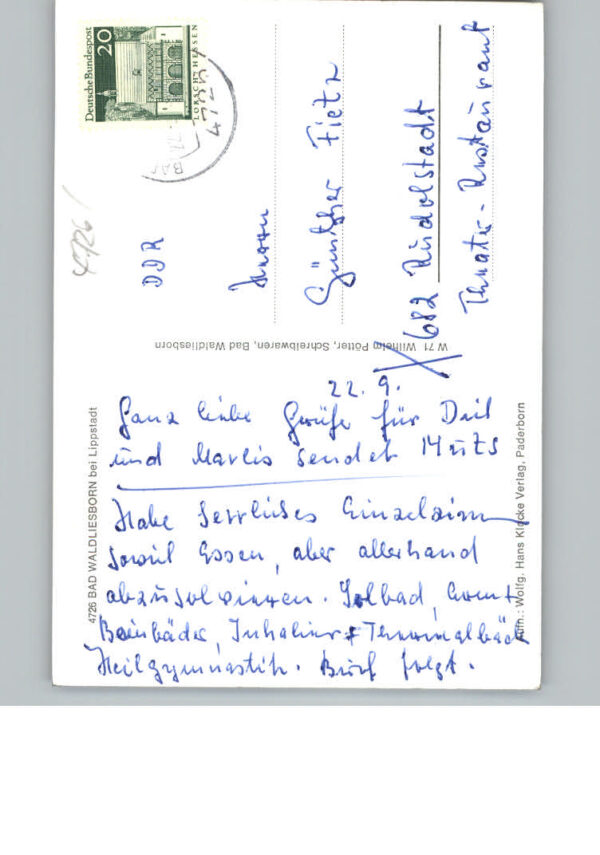 4726 BAD WALDLIESBORN bei Lippstadt
22. 9.
Ganz liebe Grüße für Dich
und Marlis sendet Mutti
Habe herrliches Einzelzimm
sowie Essen, aber allerhand
abzusolvieren. Solbad,
Inhalier + Thermalbäd
Heilgymnastik. Brief folgt.
Aufn.: Wolfg. Hans Klocke Verlag, Paderborn
W 71 Wilhelm Pötter, Schreibwaren, Bad Waldliesborn
Deutsche Bundespost
20
LORSCH/HESSEN
4726
DDR
Herrn
Günther Fietz
682 Rudolstadt
Theater-Restaurant